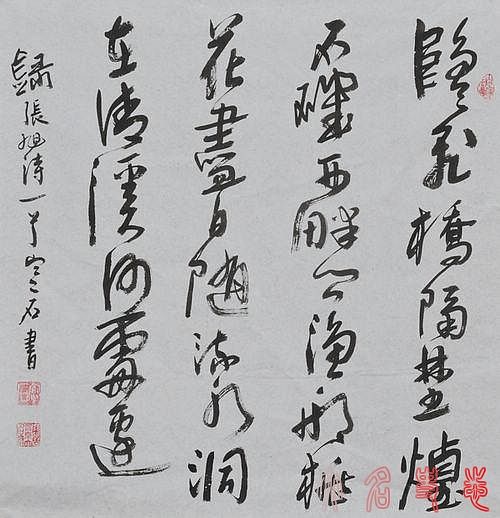 隱〻飛橋隔埜煙
石磯西畔問漁船桃
花盡日隨流水洞
在清溪何處邊
錄張旭詩一首 石書